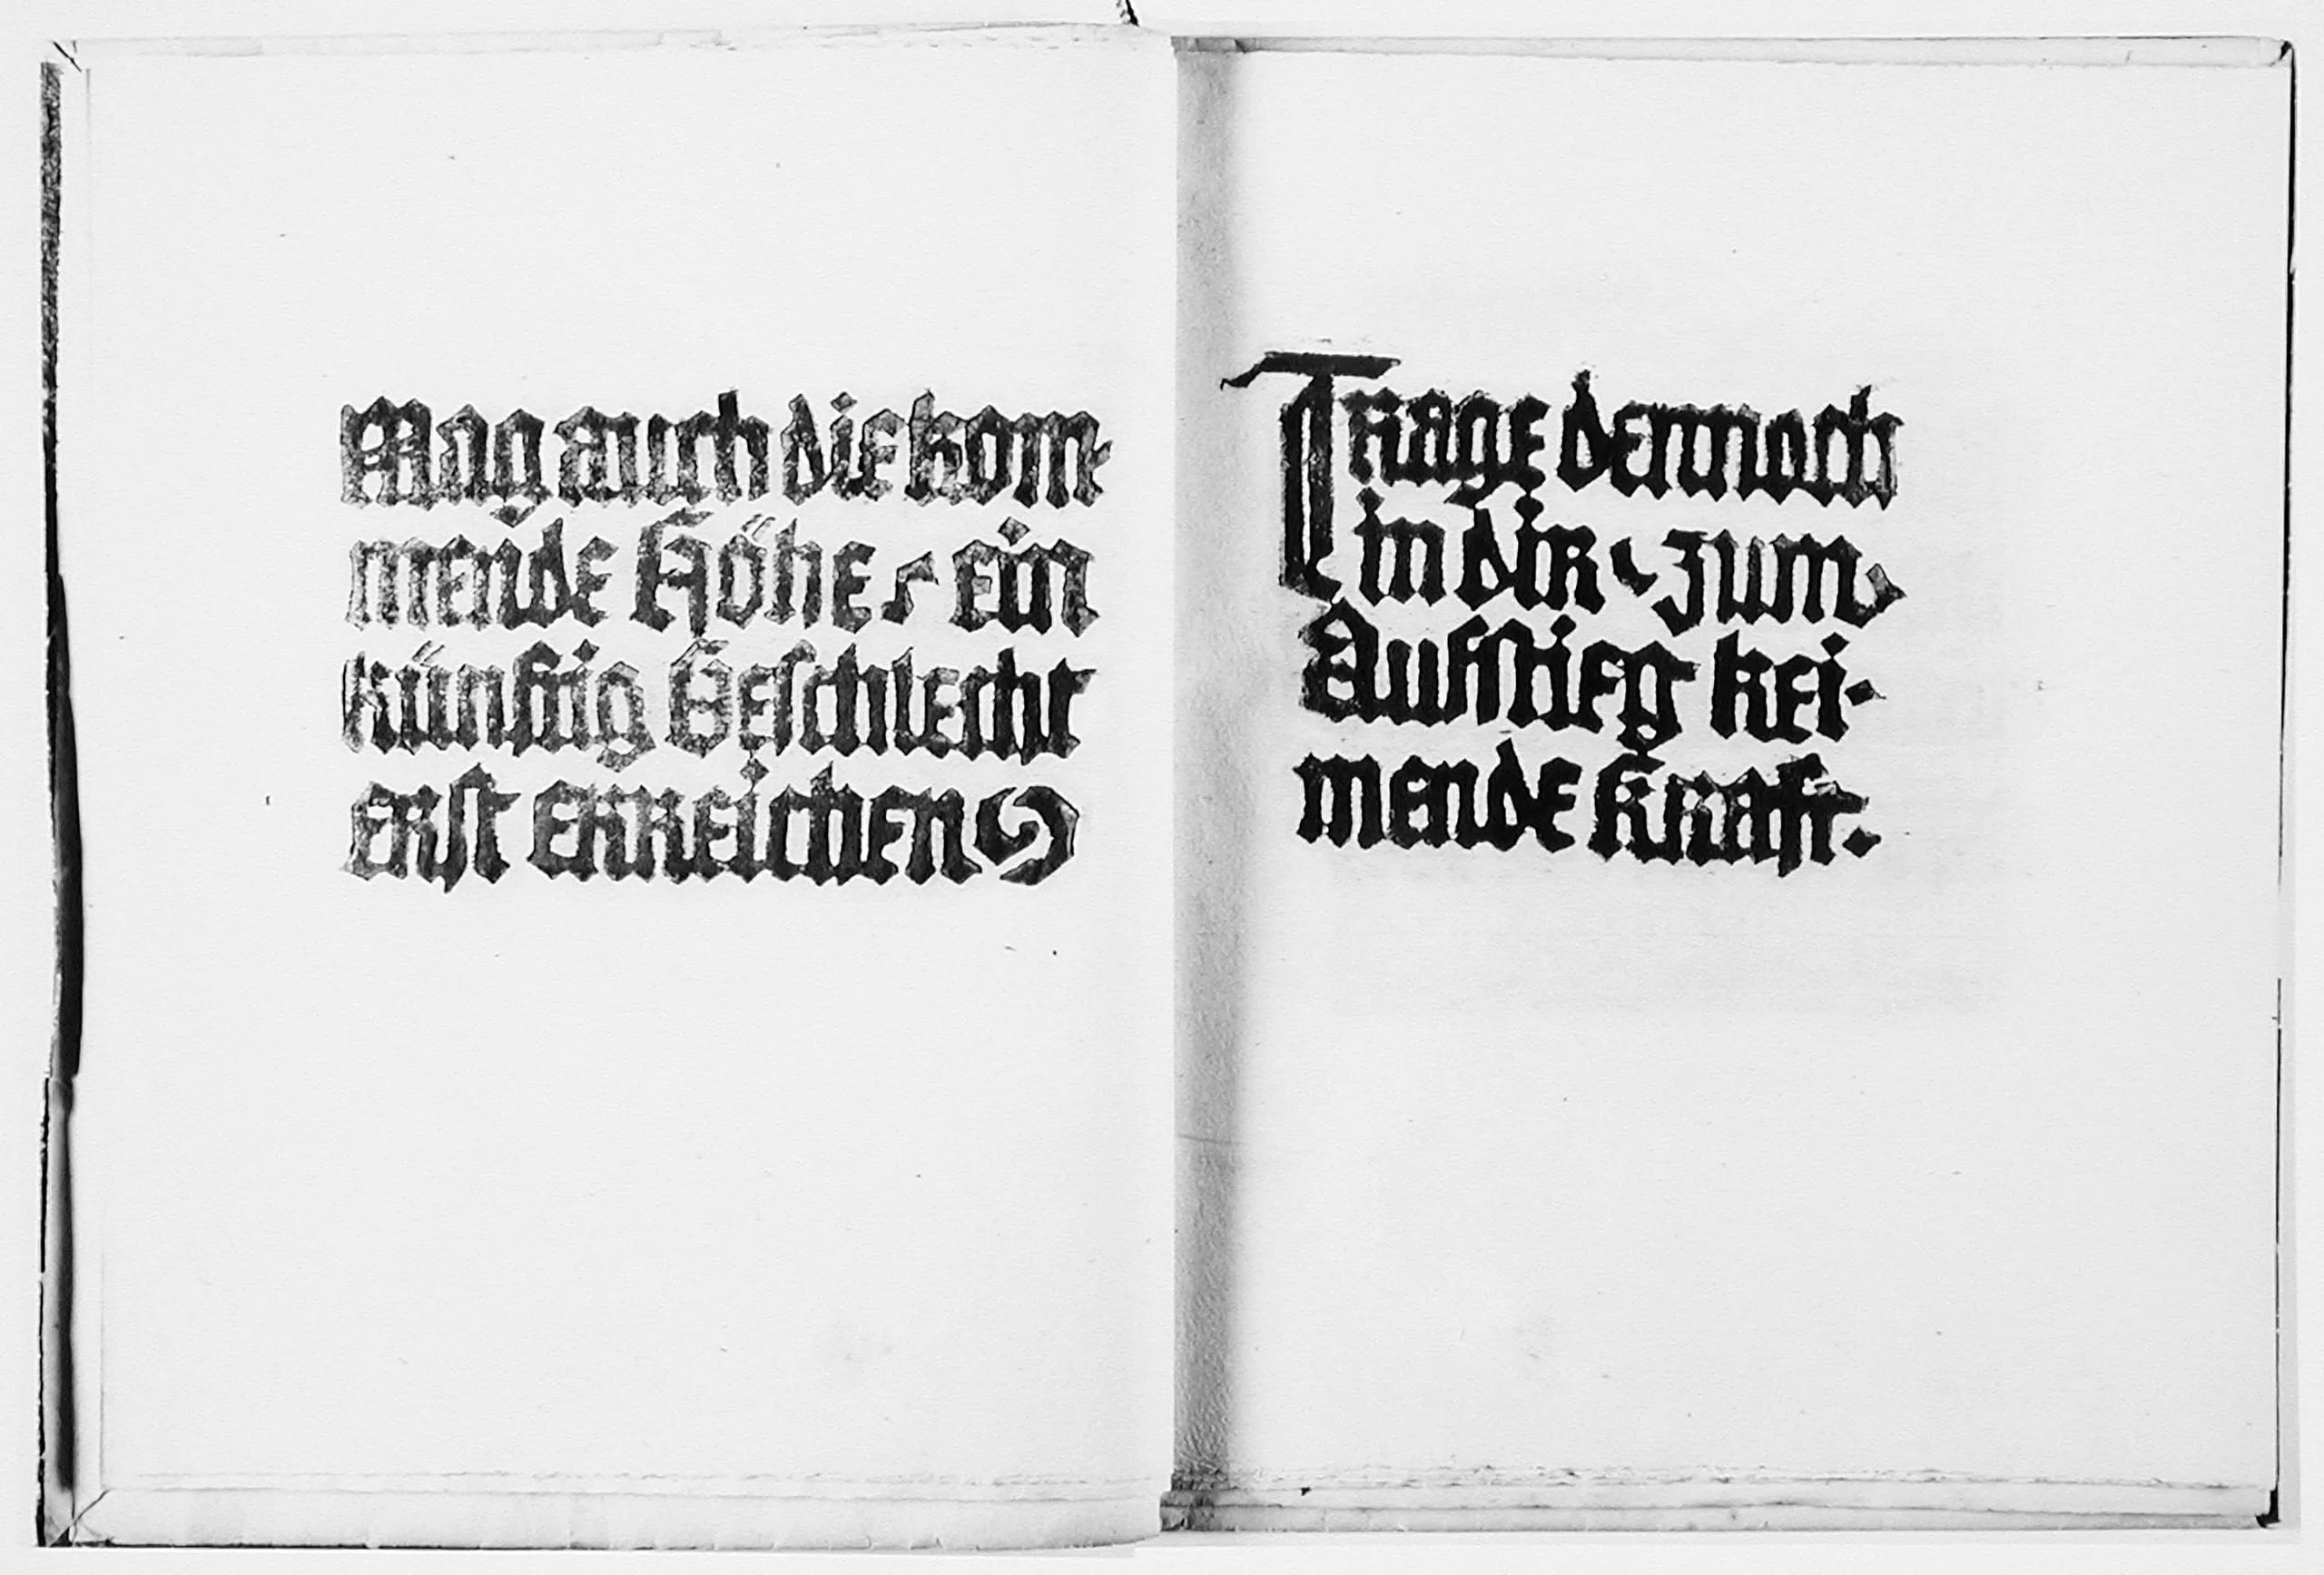 Mag auch die kom-
mende Höhe, ein
künftig Geschlecht
erst erreichen
Trage dennoch
in dir, zum
Aufstieg kei-
mende Kraft.